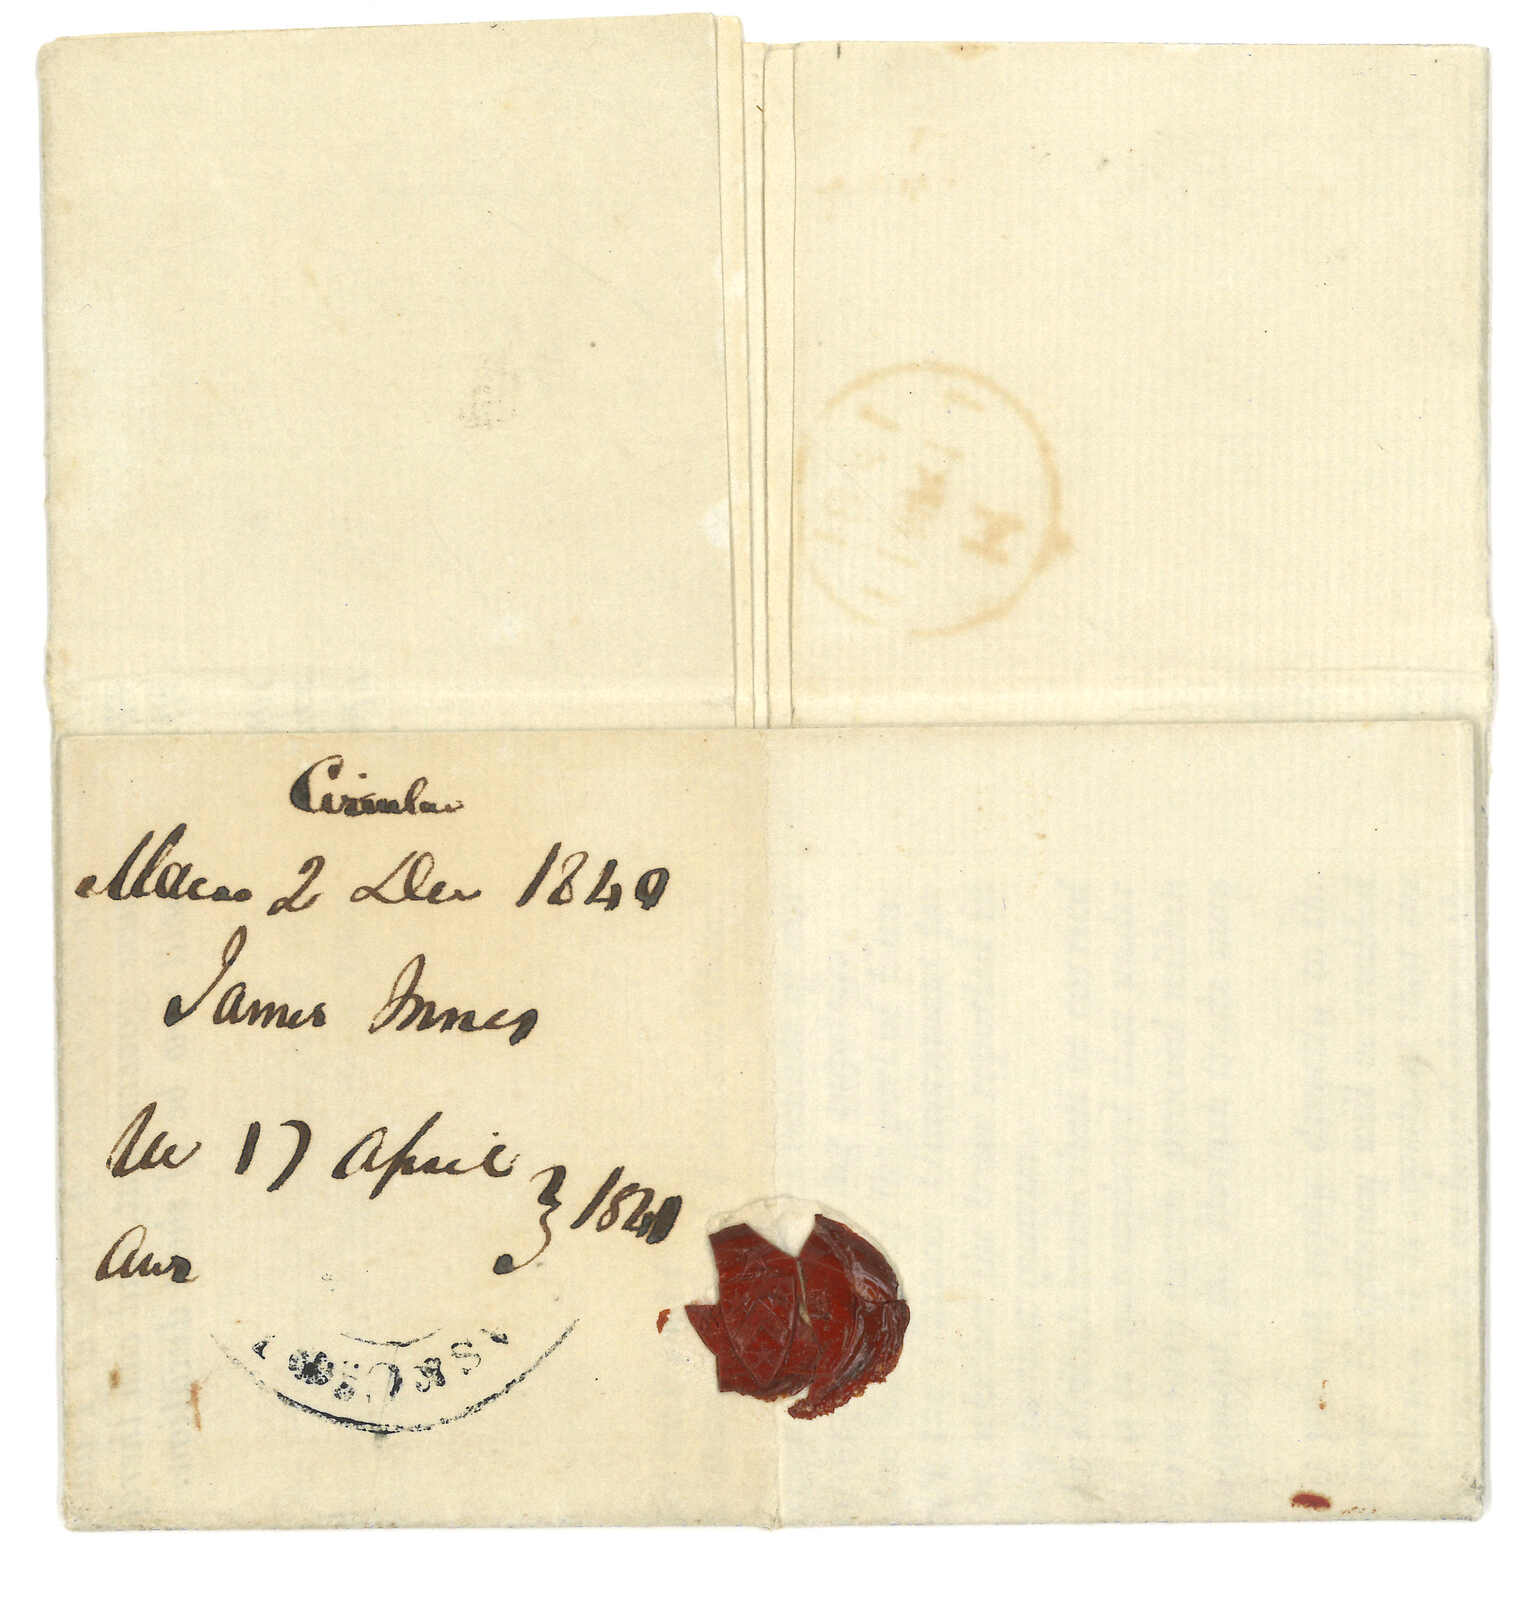 Circular
Macao 2 Dec 1840
James Innes
Rec 17 April
1841
Ans
M